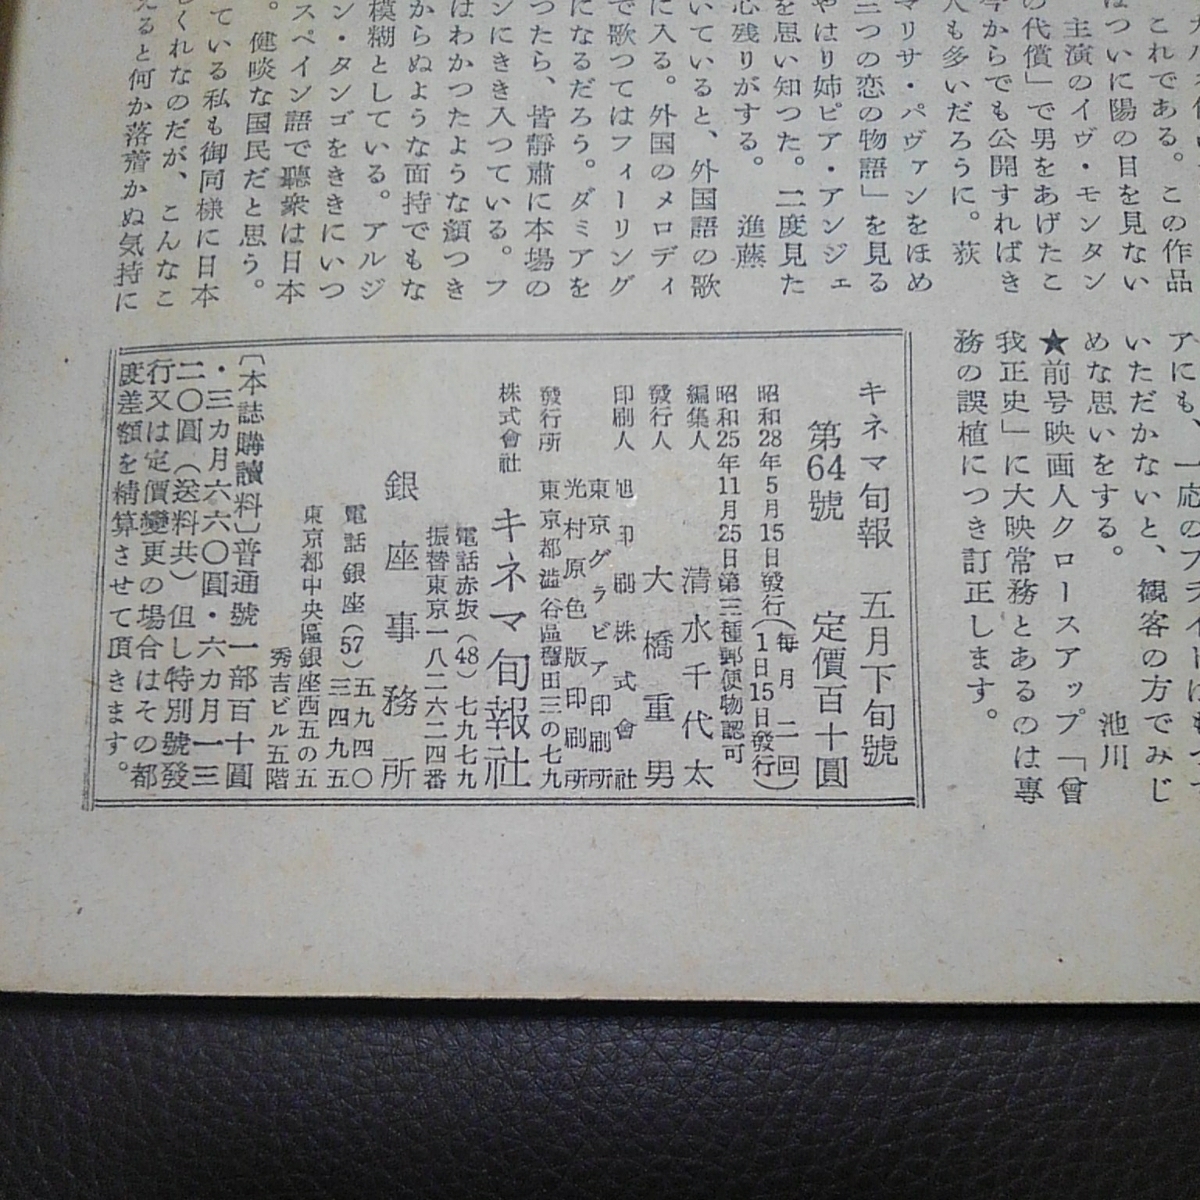 これである。この作品
はついに陽の目を見ない
主演のイヴ・モンタン
の代償」で男をあげたこ
今からでも公開すればき
人も多いだろうに。　荻
マリサ・パヴァンをほめ
三つの恋の物語」を見る
やはり姉ピア・アンジェ
を思い知つた。二度見た
心残りがする。　進藤
いていると、外国語の歌
に入る。外国のメロディ
で歌つてはフィーリング
になるだろう。ダミアを
つたら、皆靜粛に本場の
ンにきき入つている。フ
はわかつたような顔つき
からぬような面持でもな
模糊としている。アルジ
ン・タンゴをききにいつ
スペイン語で聽衆は日本
。健啖な国民だと思う。
ている私も御同様に日本
しくれなのだが、こんなこ
えると何か落着かぬ気持に
アにも、一応のプライドはもつて
いただかないと、観客の方でみじ
めな思いをする。　池川
★前号映画人クロースアップ「曾
我正史」に大映常務とあるのは専
務の誤植につき訂正します。
キネマ旬報　五月下旬號
第64號　定價百十圓
昭和28年5月15日發行（毎月二回 1日15日發行）
昭和25年11月25日第三種郵便物認可
編集人　清水千代太
發行人　大橋重男
印刷人　旭印刷株式會社
東京グラビア印刷所
光村原色版印刷所
發行所　東京都澁谷區穩田三の七九
株式會社　キネマ旬報社
電話赤坂（48）七九七九
振替東京一八二六二四番
銀座事務所
電話銀座（57）五九四〇
三四九五
東京都中央區銀座西五の五
秀吉ビル五階
〔本誌購讀料〕普通號一部百十圓
・三カ月六六〇圓・六カ月一三
二〇圓（送料共）但し特別號發
行又は定價變更の場合はその都
度差額を精算させて頂きます。